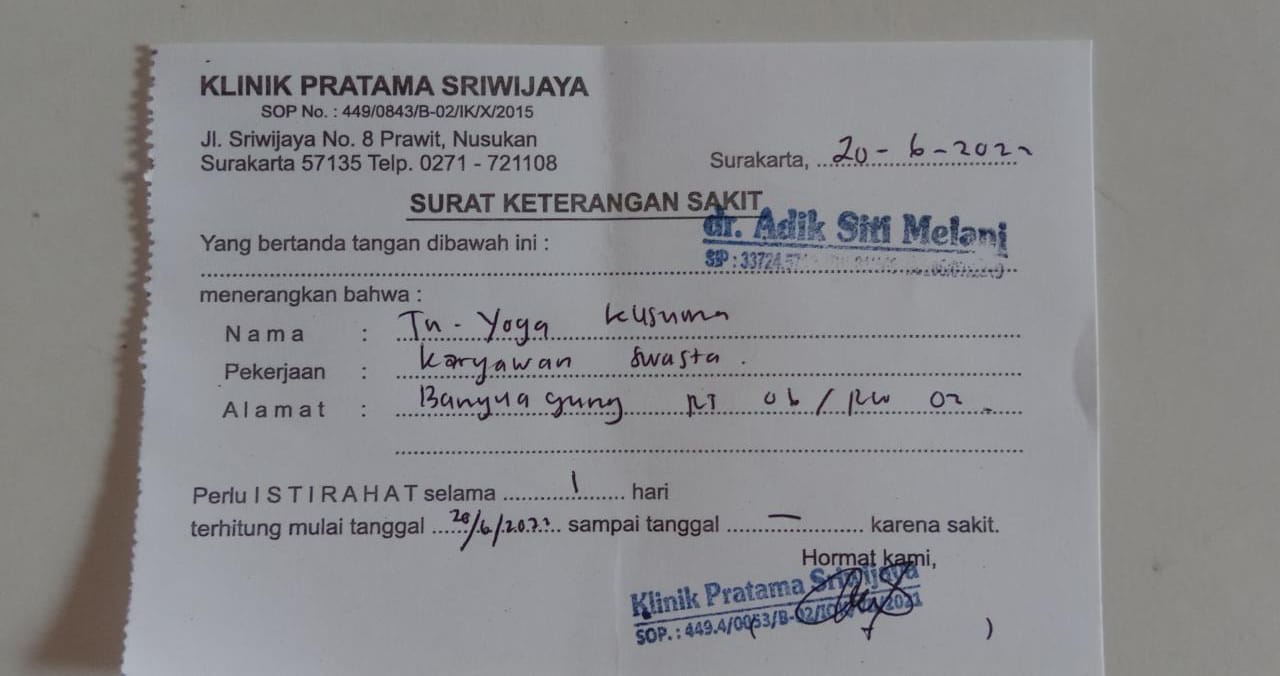 KLINIK PRATAMA SRIWIJAYA
SOP No. : 449/0843/B-02/IK/X/2015
Jl. Sriwijaya No. 8 Prawit, Nusukan
Surakarta 57135 Telp. 0271 - 721108
Surakarta, 20-6-2022
SURAT KETERANGAN SAKIT
dr. Adik Siti Melani
Yang bertanda tangan dibawah ini :
SIP : 33724.57
menerangkan bahwa :
Nama : Tn. Yoga Kusuma
Pekerjaan : Karyawan Swasta.
Alamat : Banyuagung RT 06/RW 02.
Perlu ISTIRAHAT selama 1 hari
terhitung mulai tanggal 20/6/2022 sampai tanggal — karena sakit.
Hormat kami,
Klinik Pratama Sriwijaya
SOP. : 449.4/0053/B-02/ 2021
( )